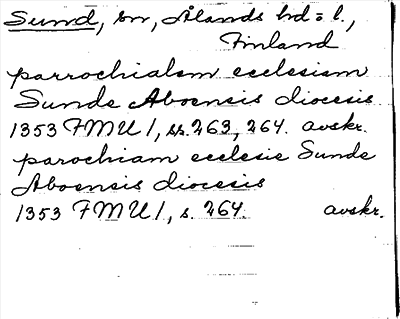 Sund, sn, Ålands hd = l.,
Finland
parrochialem ecclesiam
Sunde Aboensis diocesis
1353 FMU 1, ss. 263, 264. avskr.
parochiam ecclesie Sunde
Aboensis diocesis
1353 FMU 1, s. 264. avskr.